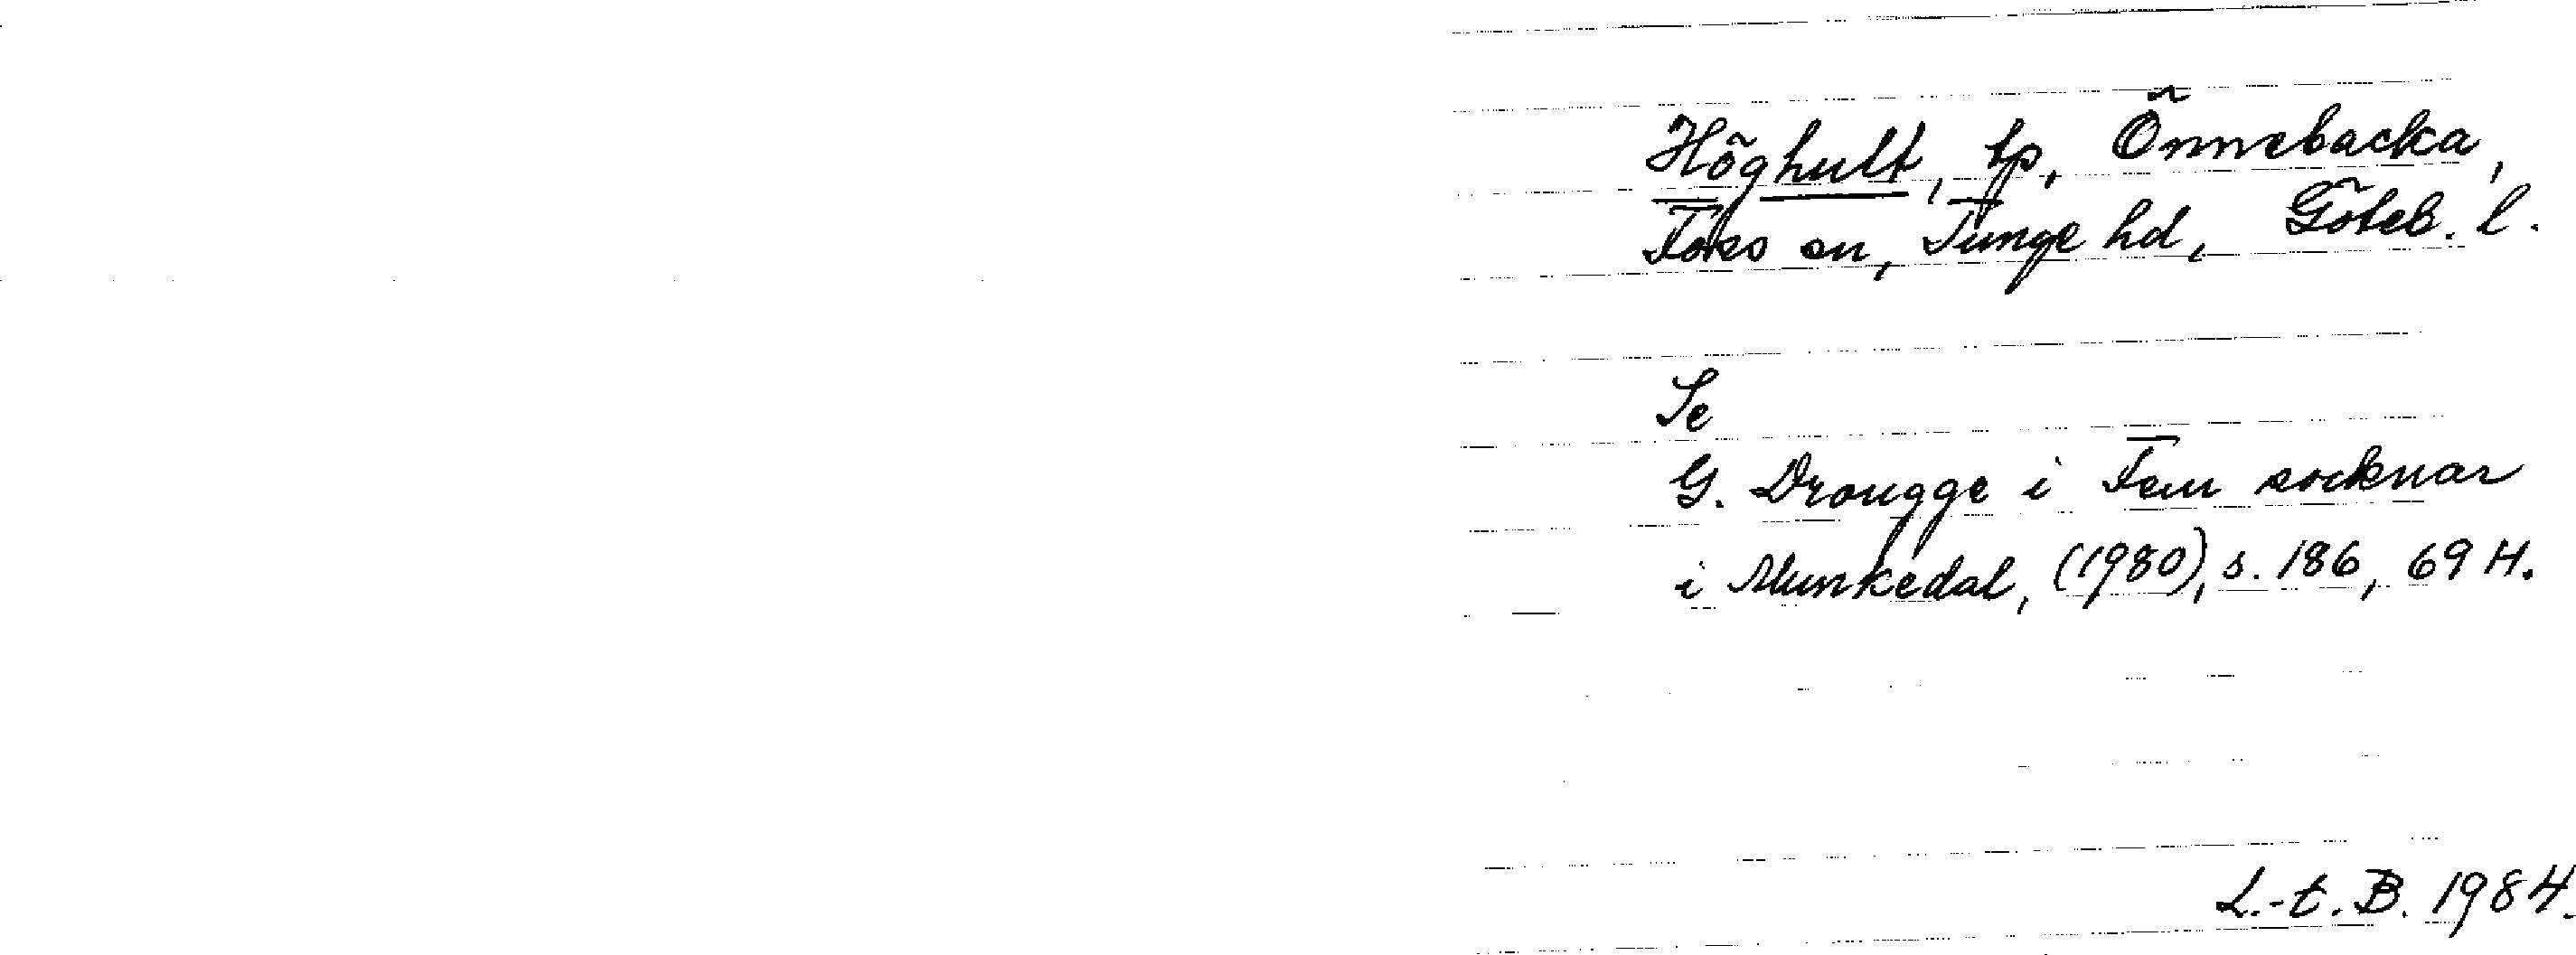 Höghult, tp, Önnebacka,
Foss sn, Tunge hd, Göteb. l.
Se
G. Drougge i Fem socknar
i Munkedal, (1980), s. 186, 69 H.
L.-t. B. 1984.